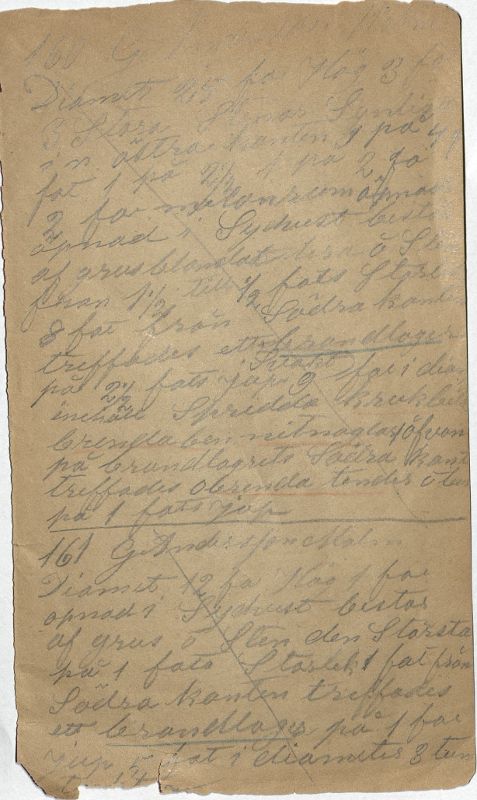 160 G Andersson Malm
Diamet 25 fo Hög 3 fo
3 Stora Stenar Synliga
i n östra kanten 1 på 4
fot 1 på 2½ 1 på 2 fo
2 fo melanrum
öpnad i Sydvest bestor
af grusblondat jord ö Sten
från 1½ till ½ fots Storlek
8 fot från Södra kanten
treffades ett brandlager
på 2½ fots jup 2 fo i diam
inehålt Spridda krukbitar
brenda ben nitnaglar öfvan
på brandlagrets Södra kant
treffades obrenda tender ö ben
på 1 fots jup
161 G Andersson Malm
Diamet 12 fo Hög 1 foe
öpnad i Sydvest bestor
af grus ö Sten den Största
på 1 foto Storlek 1 fot från
Södra kanten treffades
ett brandlager på 1 foe
jup 5 fot i diameter 3 tum